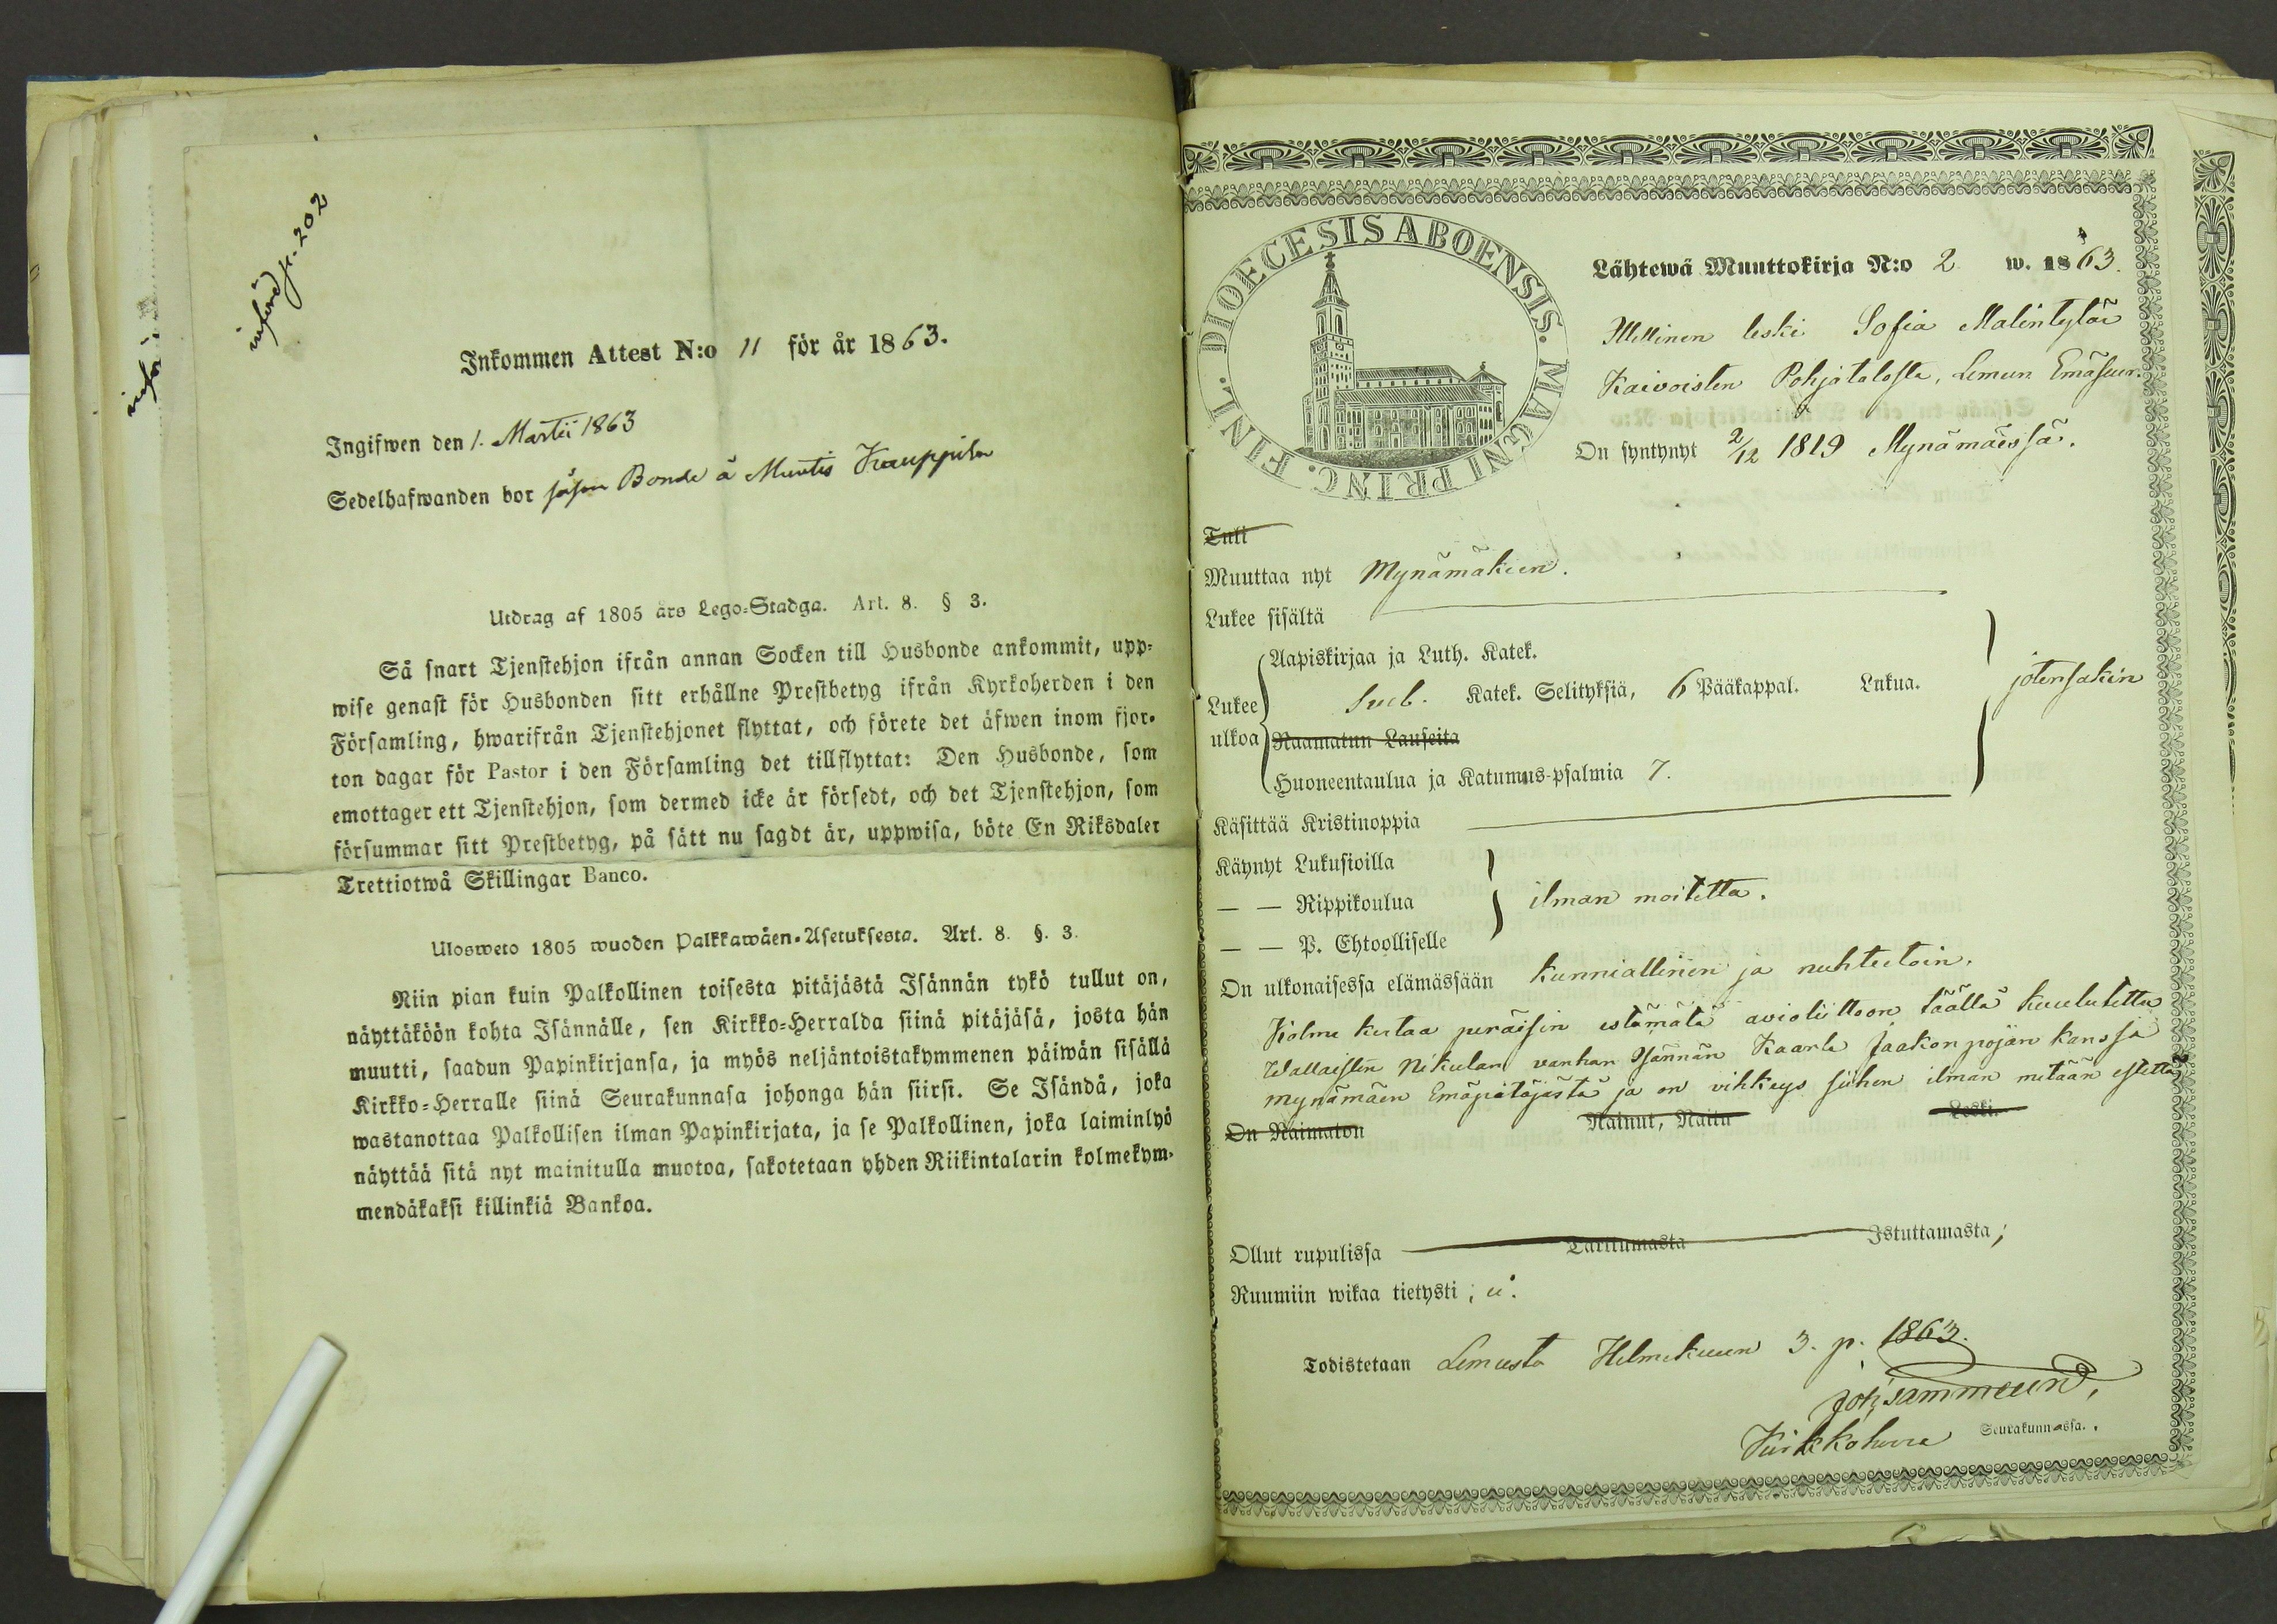 införd p. 202
inför
Inkommen Attest N:o 11 för år 1863.
Ingifwen den 1. Martii 1863
Sedelhafwanden bor såsom Bonde å Muntis Kauppila
Utdrag af 1805 års Lego-Stadga. Art. 8. § 3.
Så snart Tjenstehjon ifrån annan Socken till Husbonde ankommit, upp-
wise genast för Husbonden sitt erhållne Prestbetyg ifrån Kyrkoherden i den
Församling, hwarifrån Tjenstehjonet flyttat, och förete det äfwen inom fjor-
ton dagar för Pastor i den Församling det tillflyttat: Den Husbonde, som
emottager ett Tjenstehjon, som dermed icke är försedt, och det Tjenstehjon, som
försummar sitt Prestbetyg, på sätt nu sagdt är, uppwisa, böte En Riksdaler
Trettiotwå Skillingar Banco.
Ulosweto 1805 wuoden Palkkawäen-Asetuksesta. Art. 8. §. 3.
Niin pian kuin Palkollinen toisesta pitäjästä Isännän tykö tullut on,
näyttäköön kohta Isännälle, sen Kirkko-Herralda siinä pitäjäsä, josta hän
muutti, saadun Papinkirjansa, ja myös neljäntoistakymmenen päiwän sisällä
Kirkko-Herralle siinä Seurakunnasa johonga hän siirsi. Se Isändä, joka
wastanottaa Palkollisen ilman Papinkirjata, ja se Palkollinen, joka laiminlyö
näyttää sitä nyt mainitulla muotoa, sakotetaan yhden Riikintalarin kolmekym-
mendäkaksi killinkiä Bankoa.
DIOECESIS ABOENSIS. MAGNI PRINC. FINL.
Lähtewä Muuttokirja N:o 2 w. 1863.
leski Sofia Matintytär
Kaivoisten Pohjatalosta, Lemun Emäseur.
On syntynyt 2/12 1819 Mynämäessä.
Tuli
Muuttaa nyt Mynämäkeen.
Lukee sisältä
Lukee ulkoa
Aapiskirjaa ja Luth. Katek.
Sveb. Katek. Selityksiä, 6 Pääkappal. Lukua.
jotensakin
Raamatun Lauseita
Huoneentaulua ja Katumus-psalmia 7.
Käsittää Kristinoppia
Käynyt Lukusioilla
— — Rippikoulua
ilman moitetta.
— — P. Ehtoolliselle
On ulkonaisessa elämässään kunniallinen ja nuhteetoin.
Kolme kertaa peräisin estämätä avioliittoon täällä kuulutettu
Wallaisten Nikulan vanhan Isännän Kaarle Jaakon pojan kanssa
Mynämäen Emäpitäjästä ja on vihkeys siihen ilman mitään estettä
On Naimaton Nainut, Naitu Leski.
Ollut rupulissa Tarttumasta Istuttamasta;
Ruumiin wikaa tietysti; ei.
Todistetaan Lemusta Helmikuun 3. p. 1863.
Joh. Sammelund,
Kirkkoherra Seurakunnassa.